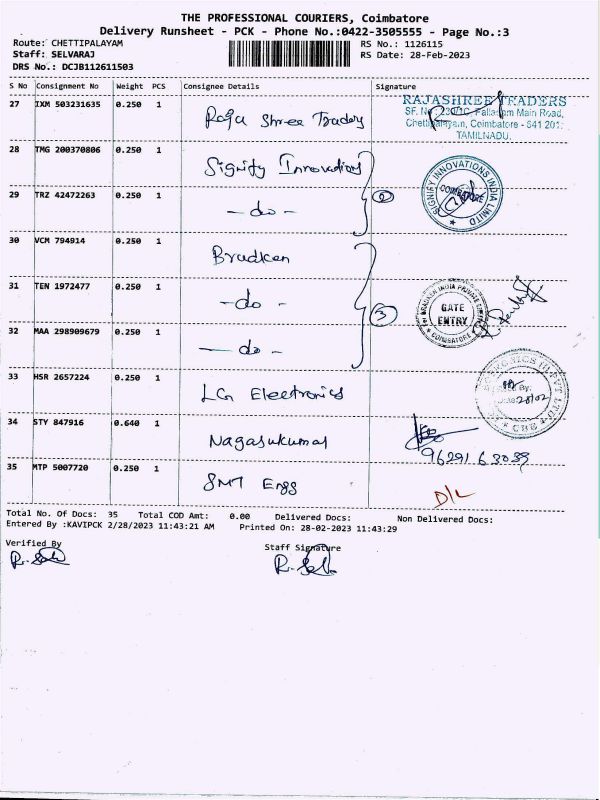 THE PROFESSIONAL COURIERS, Coimbatore
Delivery Runsheet - PCK - Phone No.:0422-3505555 - Page No.:3
Route: CHETTIPALAYAM RS No.: 1126115
Staff: SELVARAJ RS Date: 28-Feb-2023
DRS No.: DCJB112611503
S No Consignment No Weight PCS Consignee Details Signature
27 IXM 503231635 0.250 1 Raja Shree Traders
RAJASHREE TRADERS
Main Road,
Coimbatore - 641 201.
TAMILNADU.
28 TMG 200370806 0.250 1 Signify Innovation
29 TRZ 42472263 0.250 1 - do - 2
SIGNIFY INNOVATIONS INDIA LIMITED
COIMBATORE
30 VCM 794914 0.250 1 Bradken
31 TEN 1972477 0.250 1 - do - 3
GATE
ENTRY
COIMBATORE
32 MAA 298909679 0.250 1 - do -
33 HSR 2657224 0.250 1 LG Electronics
28/02
CBE
34 STY 847916 0.640 1 Nagasukumar
35 MTP 5007720 0.250 1 SMT Engg D/L
Total No. Of Docs: 35 Total COD Amt: 0.00 Delivered Docs: Non Delivered Docs:
Entered By :KAVIPCK 2/28/2023 11:43:21 AM Printed On: 28-02-2023 11:43:29
Verified By Staff Signature